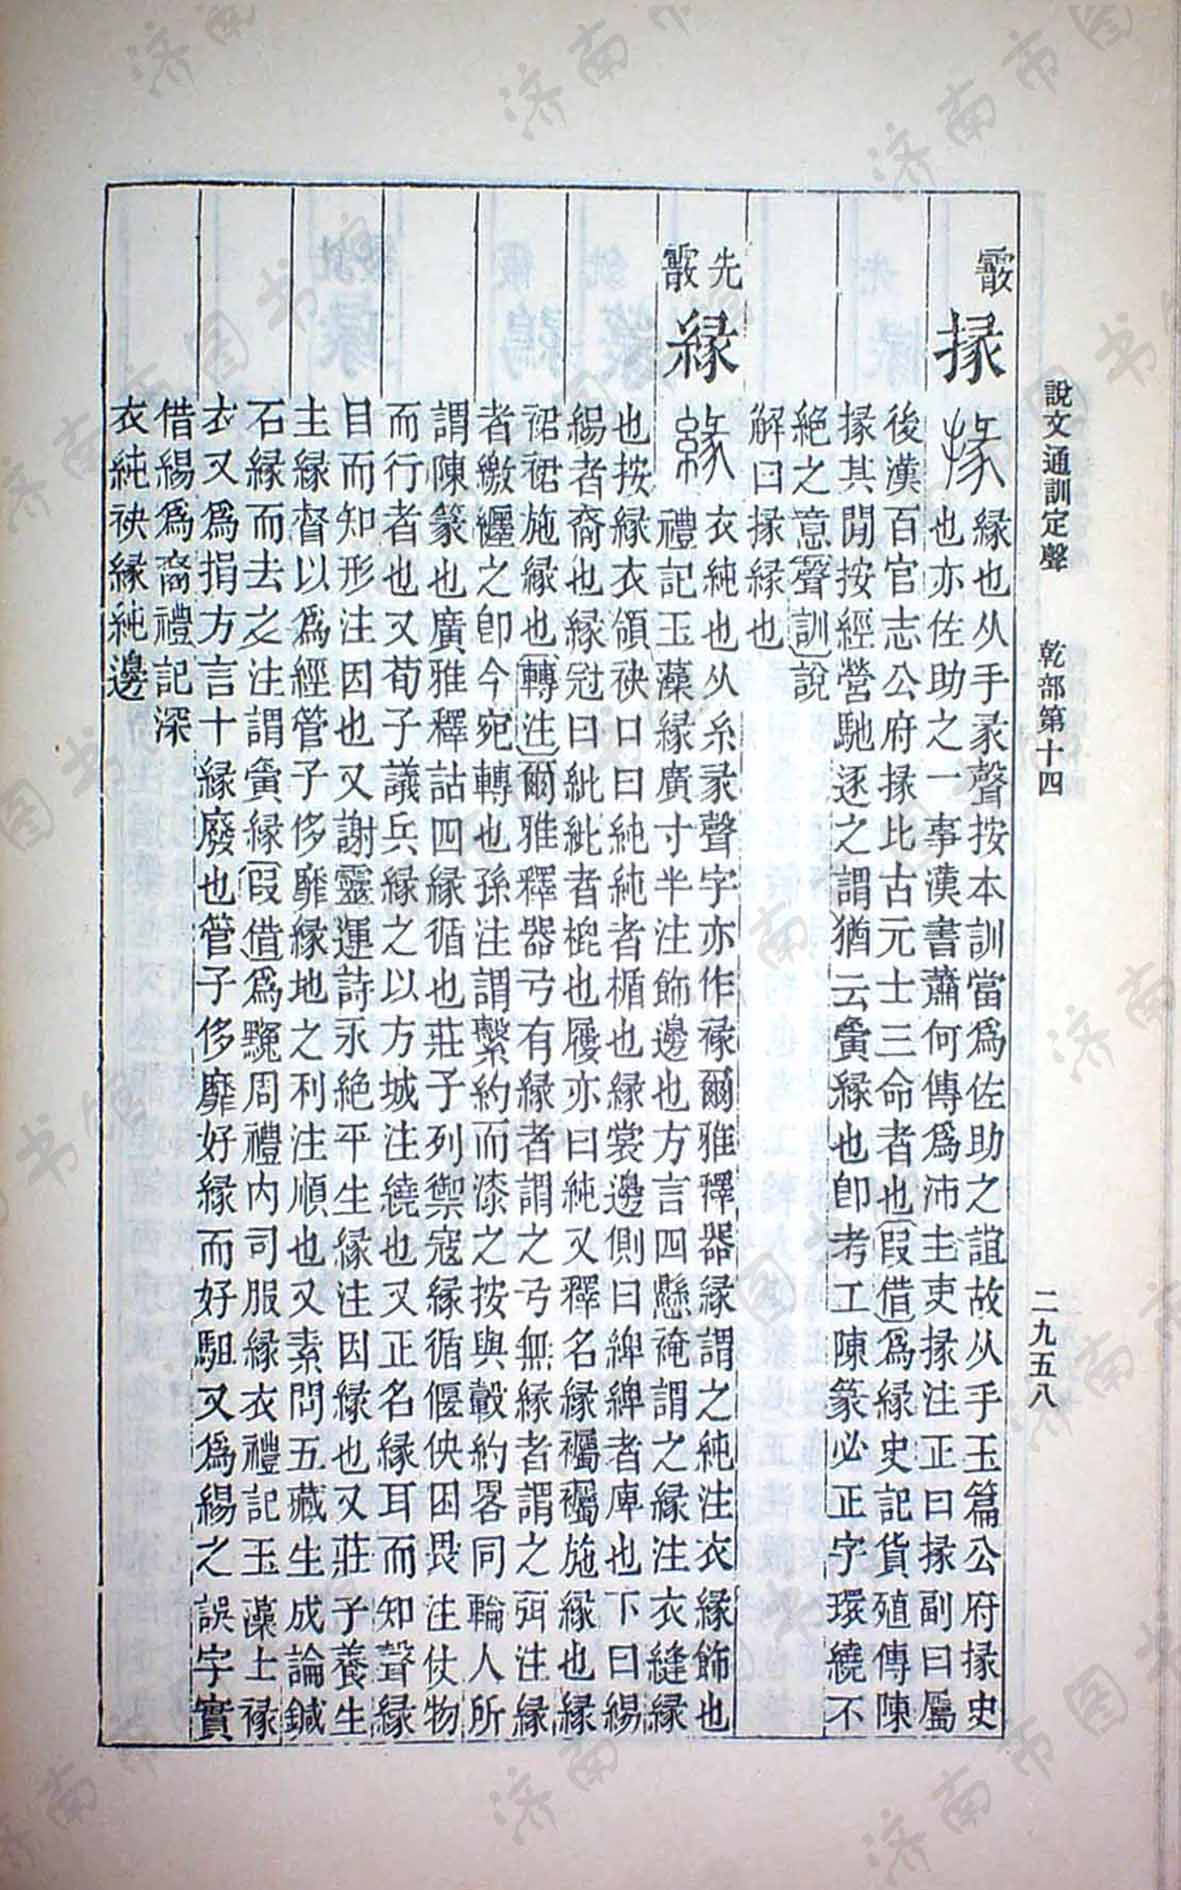 說文通訓定聲 乾部第十四 二九五八
霰
掾
掾
緣也从手彖聲按本訓當爲佐助之誼故从手玉篇公府掾史
也亦佐助之一事漢書蕭何傳爲沛主吏掾注正曰掾副曰屬
後漢百官志公府掾比古元士三命者也叚借爲緣史記貨殖傳陳
掾其閒按經營馳逐之謂猶云夤緣也卽考工陳篆必正字環繞不
絕之意聲訓說
解曰掾緣也
先
霰
緣
緣
衣純也从糸彖聲字亦作褖爾雅釋器緣謂之純注衣緣飾也
禮記玉藻緣廣寸半注飾邊也方言四懸裺謂之緣注衣縫緣
也按緣衣領袂口曰純純者楯也緣裳邊側曰綼綼者庳也下曰緆
緆者裔也緣冠曰紕紕者也屨亦曰純又釋名緣襡襡施緣也緣
裙裙施緣也轉注爾雅釋器弓有緣者謂之弓無緣者謂之弭注緣
者繳纏之卽今宛轉也孫注謂繫約而漆之按與轂約畧同輪人所
謂陳篆也廣雅釋詁四緣循也莊子列禦寇緣循偃佒困畏注仗物
而行者也又荀子議兵緣之以方城注繞也又正名緣耳而知聲緣
目而知形注因也又謝靈運詩永絕平生緣注因緣也又莊子養生
主緣督以爲經管子侈靡緣地之利注順也又素問五藏生成論鍼
石緣而去之注謂夤緣叚借爲周禮內司服緣衣禮記玉藻士褖
衣又爲捐方言十緣廢也管子侈靡好緣而好駔又爲緆之誤字實
借緆爲裔禮記深
衣純袂緣純邊